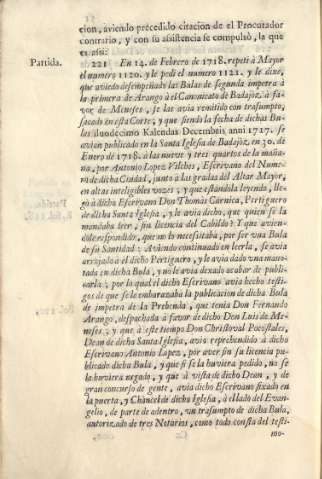 cion, aviendo precedido citacion de el Procurador
contrario, y con su asistencia se compulsò, la que
es assi:
Partida.
221 En 14. de Febrero de 1718. repeti à Mayor
el numero 1120. y le pedi el numero 1121. y le dixe,
que aviendo desempeñado las Bulas de segunda impetra à
la primera de Arango à el Canonicato de Badajòz, à fa-
vor de Meneses, se las avia remitido con trasumpto,
sacado en esta Corte; y que siendo la fecha de dichas Bu-
las duodecimo Kalendas Decembris anni 1727. se
avian publicado en la Santa Iglesia de Badajòz, en 30. de
Enero de 1718. à las nueve y tres quartos de la maña-
na, por Antonio Lopez Vilches, Escrivano del Nume-
ro de dicha Ciudad, junto à las gradas del Altar Mayor,
en altas inteligibles vozes; y que estandola leyendo, lle-
gò à dicho Escrivano Don Thomàs Garnica, Pertiguero
de dicha Santa Iglesia, y le avia dicho, que quien se la
mandaba leer, sin licencia del Cabildo? Y que avien-
dole respondido, que no la necessitaba, por ser una Bula
de su Santidad: Aviendo continuado en leerla, se avia
arrojado à el dicho Pertiguero, y le avia dado una mano-
tada en dicha Bula, y no le avia dexado acabar de publi-
carla; por lo qual el dicho Escrivano avia hecho testi-
gos de que se le embarazaba la publicacion de dicha Bula
de impetra de la Prebenda, que tenia Don Fernando
Arango, despachada à favor de dicho Don Luis de Me-
neses; y que à este tiempo Don Christoval Pocostales,
Dean de dicha Santa Iglesia, avia reprehendido à dicho
Escrivano Antonio Lopez, por aver sin su licencia pu-
blicado dicha Bula, y que si se la huviera pedido, no se
la huviera negado, y que à vista de dicho Dean, y de
gran concurso de gente, avia dicho Escrivano fixado en
la puerta, y Chancel de dicha Iglesia, à el lado del Evan-
gelio, de parte de adentro, un trasumpto de dicha Bula,
autorizado de tres Notarios, como todo consta del testi-
mo-